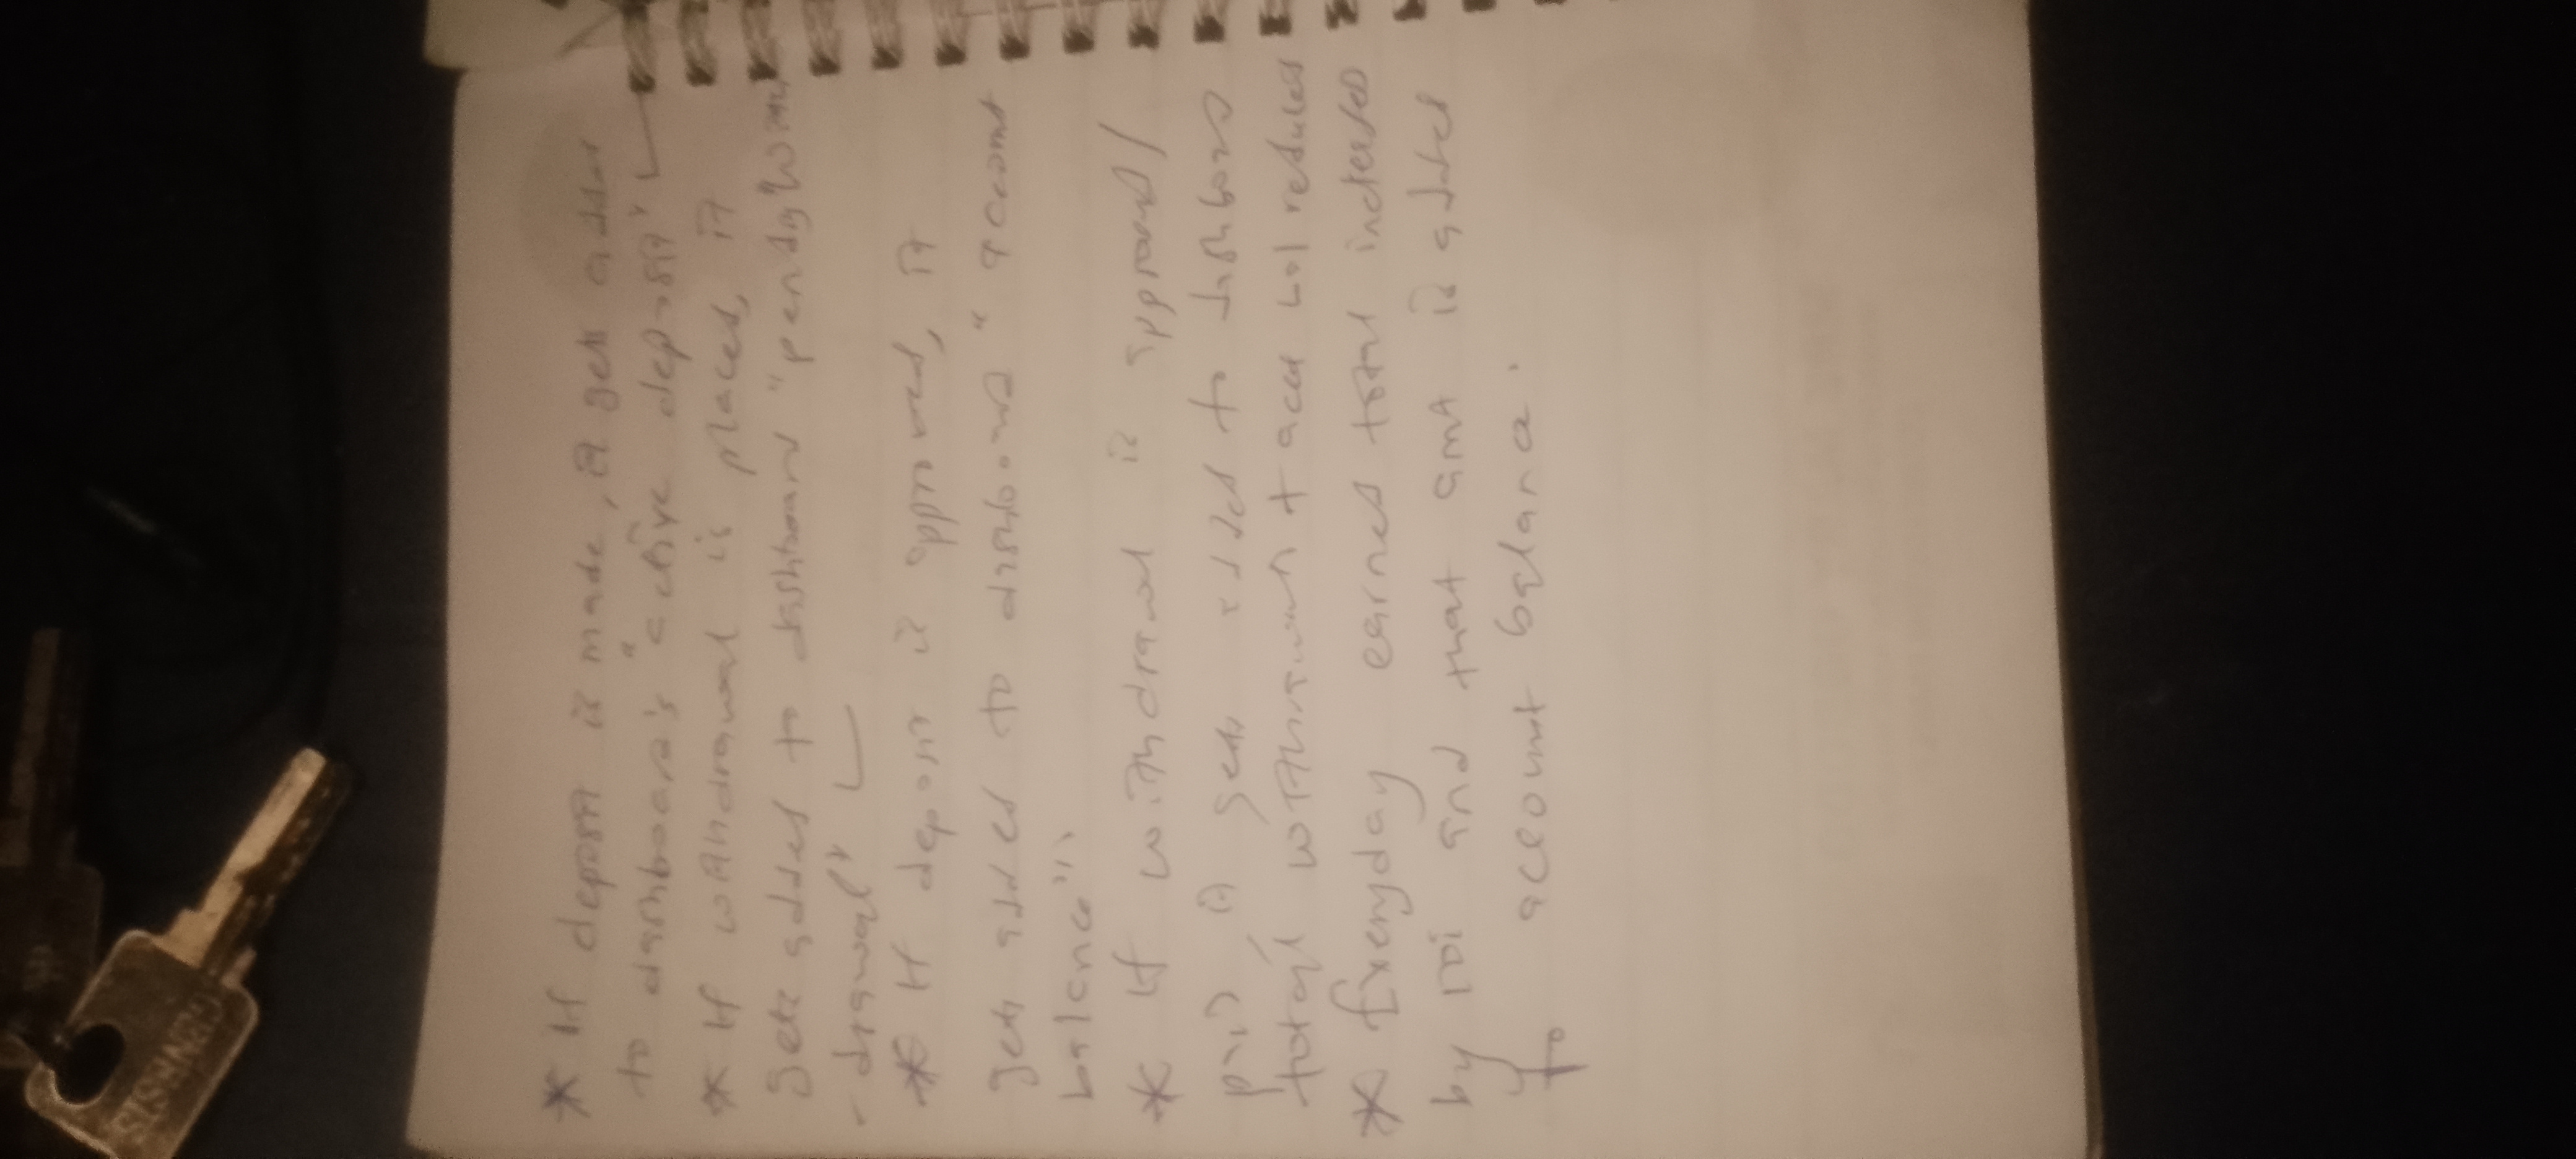 * If deposit is made, it gets added
to dashboard's "active deposit"
* If withdrawal is placed, it
gets added to dashboard "pending with
- drawal"
* If deposit is approved, it
gets added to dashboard "account
balance".
* If withdrawal is approved/
paid it gets added to dashboard
total withdrawal + acct bal reduces
* Everyday earned total increases
by roi and that amt is added
to account balance.